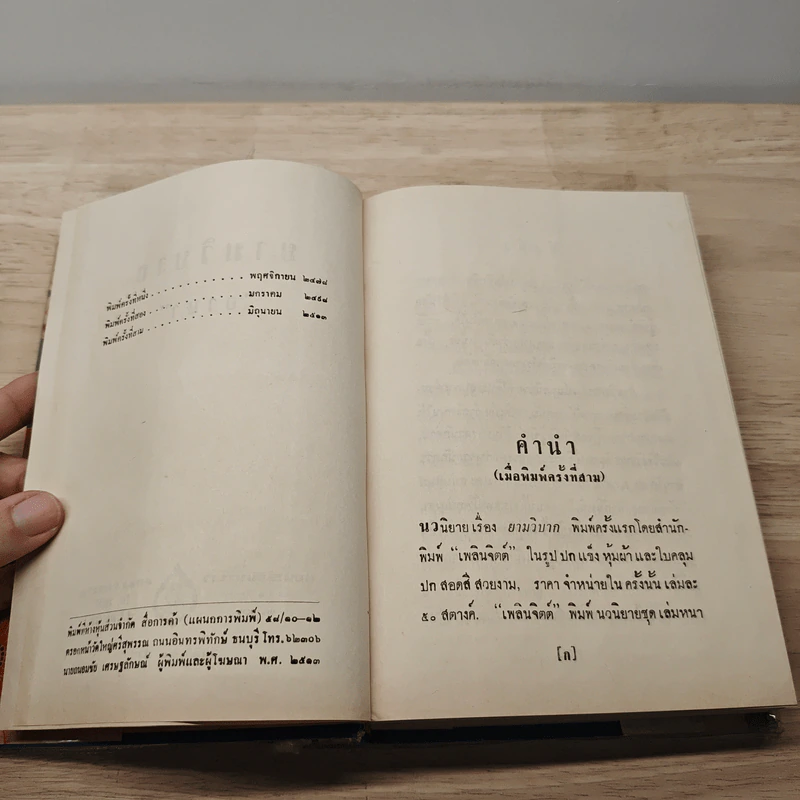 พิมพ์ครั้งที่หนึ่ง . . . . . . . . . . . . พฤศจิกายน ๒๔๗๘
พิมพ์ครั้งที่สอง . . . . . . . . . . . . มกราคม ๒๔๙๔
พิมพ์ครั้งที่สาม . . . . . . . . . . . . มิถุนายน ๒๕๑๓
พิมพ์ที่ห้างหุ้นส่วนจำกัด สื่อการค้า (แผนกการพิมพ์) ๕๘/๑๐–๑๒
ตรอกหน้าวัดใหญ่ศรีสุพรรณ ถนนอินทรพิทักษ์ ธนบุรี โทร. ๖๒๓๐๖
นายถนอมชัย เศรษฐลักษณ์ ผู้พิมพ์และผู้โฆษณา พ.ศ. ๒๕๑๓
คำนำ
(เมื่อพิมพ์ครั้งที่สาม)
นวนิยายเรื่อง ยามวิบาก พิมพ์ครั้งแรกโดยสำนัก-
พิมพ์ “เพลินจิตต์” ในรูป ปก แข็ง หุ้มผ้า และใบคลุม
ปก สอดสี สวยงาม, ราคา จำหน่ายใน ครั้งนั้น เล่มละ
๕๐ สตางค์. “เพลินจิตต์” พิมพ์ นวนิยายชุด เล่มหนา
[ก]